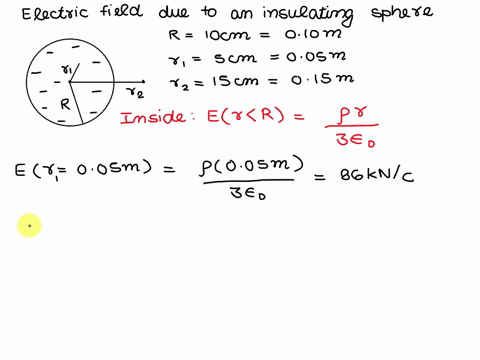 Electric field due to an insulating sphere
R = 10cm = 0.10m
r₁ = 5cm = 0.05m
r₂ = 15cm = 0.15m
r₁
R
r₂
Inside: E(r<R) = ρr / 3ε₀
E(r₁= 0.05m) = ρ(0.05m) / 3ε₀ = 86kN/c